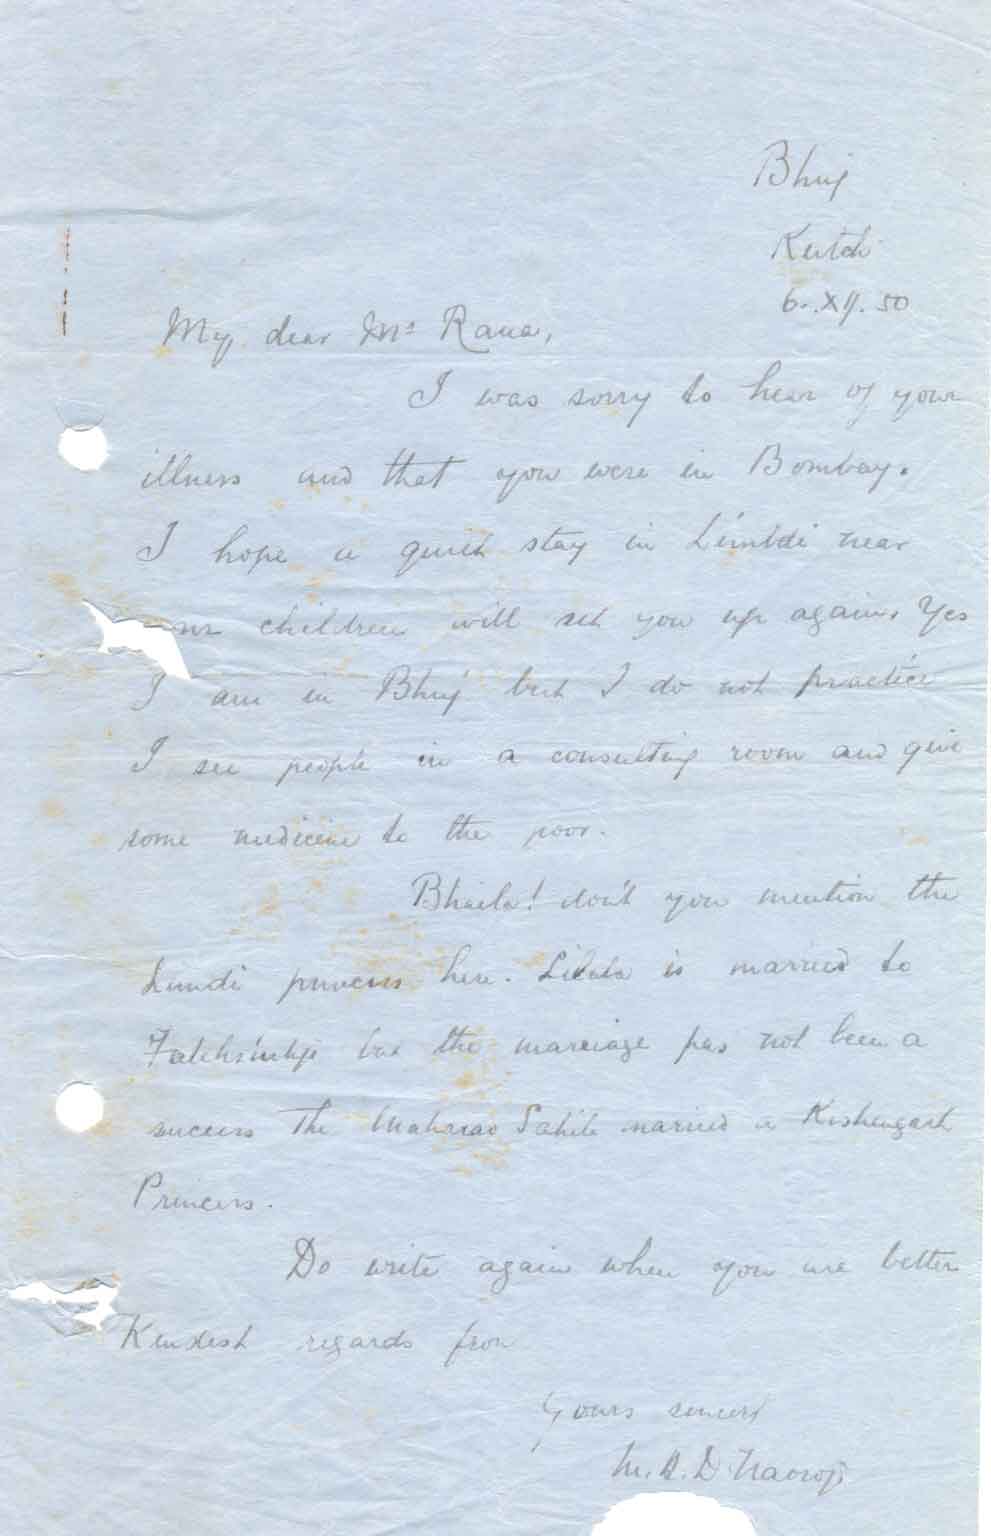 Bhuj
Kutch
6.XII.50
My dear Mr Rana,
I was sorry to hear of your
illness and that you were in Bombay.
I hope a quiet stay in Limbdi near
children will set you up again. Yes
I am in Bhuj but I do not practice
I see people in a consulting room and give
some medicine to the poor.
Bhaila! don't you mention the
Limdi princess here. is married to
Fatehsinhji but the marriage has not been a
success The Maharao Sahib married a Kishengarh
Princess.
Do write again when you are better
Kindest regards from
Yours sincerely
M.A.D. Naoroji